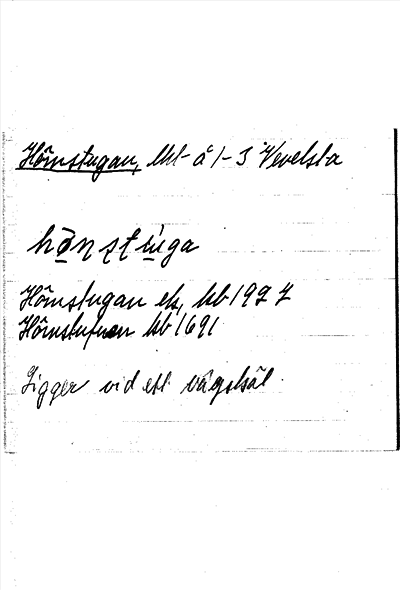 Hörnstugan, lht å 1-3 Vevelsta
hö̱nʂtu̱ga
Hörnstugan ek, kb 1927
Hörnstufwan kb 1691
Ligger vid ett vägskäl.